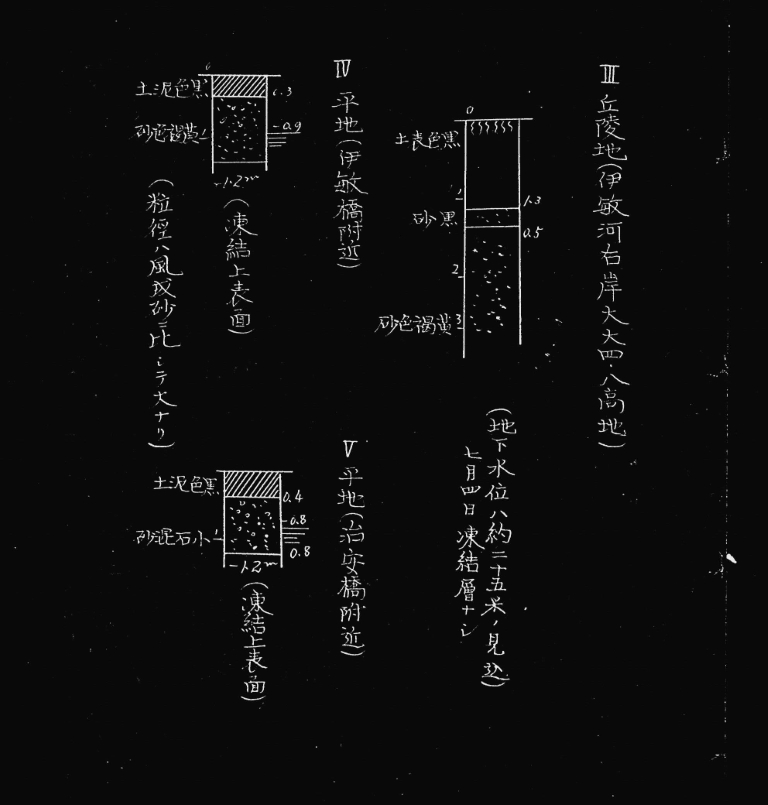 Ⅲ 丘陵地(伊敏河右岸六六四・八高地)
0
黒色表土
1
1.3
黒砂
0.5
2
3
黄褐色砂
(地下水位ハ約二十五米ノ見込)
七月四日凍結層ナシ
Ⅳ 平地(伊敏橋附近)
0
黒色泥土
0.3
-0.9
黄褐色砂
1
-1.2m
(凍結上表面)
(粒径ハ風成砂ニ比シテ大ナリ)
Ⅴ 平地(治安橋附近)
黒色泥土
0.4
-0.8
小石混砂
1
0.8
-1.2m
(凍結上表面)